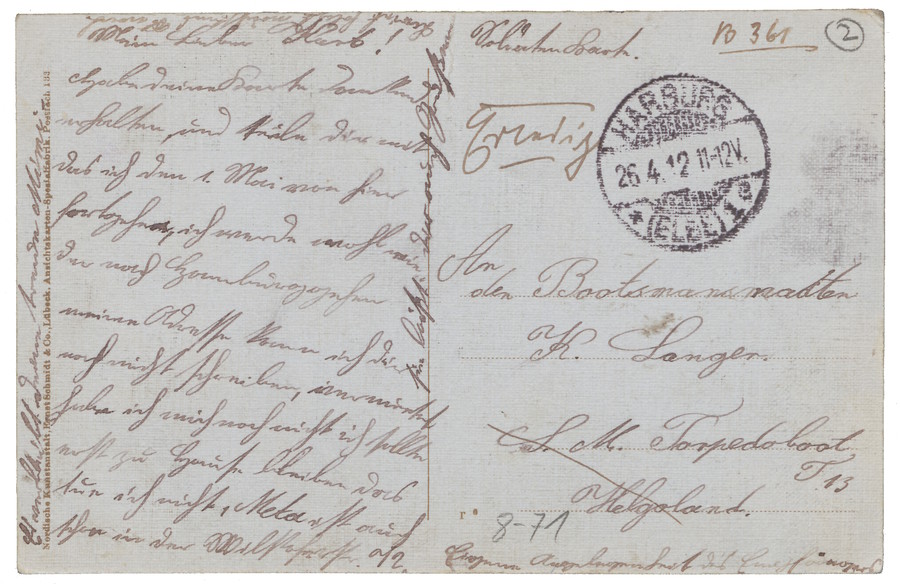 Mein Lieber Karl!
Habe deine Karte dankend
erhalten, und teile dir mit
das ich den 1. Mai von hier
fortgehe, ich werde wohl wie
der nach Hamburg gehen
meine Adresse kann ich dir
noch nicht schreiben, vermietet
habe ich mich noch nicht ich sollte
erst zu Hause bleiben das
tue ich nicht, Meta ist auch
schon in der
Soldatenkarte.
B 361
2
Erledigt
HARBURG
26.4.12 11-12V.
* (ELBE) 1 e
An
den Bootsmansmaaten
K. Langer.
S. M. Torpedoboot
T. 13
Helgoland.
8-71
Eigene Angelegenheit des Empfängers
Nordische Kunstanstalt, Ernst Schmidt & Co., Lübeck. Ansichtskarten-Spezialfabrik. Postfach 133